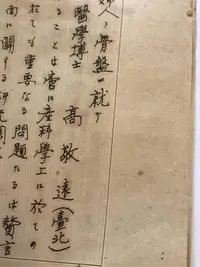 婦人ノ骨盤ニ就テ
醫學博士 高敬遠(臺北)
ることは啻に産科學上に於ての
於ても重要なる問題たるは贅言
に關する研究